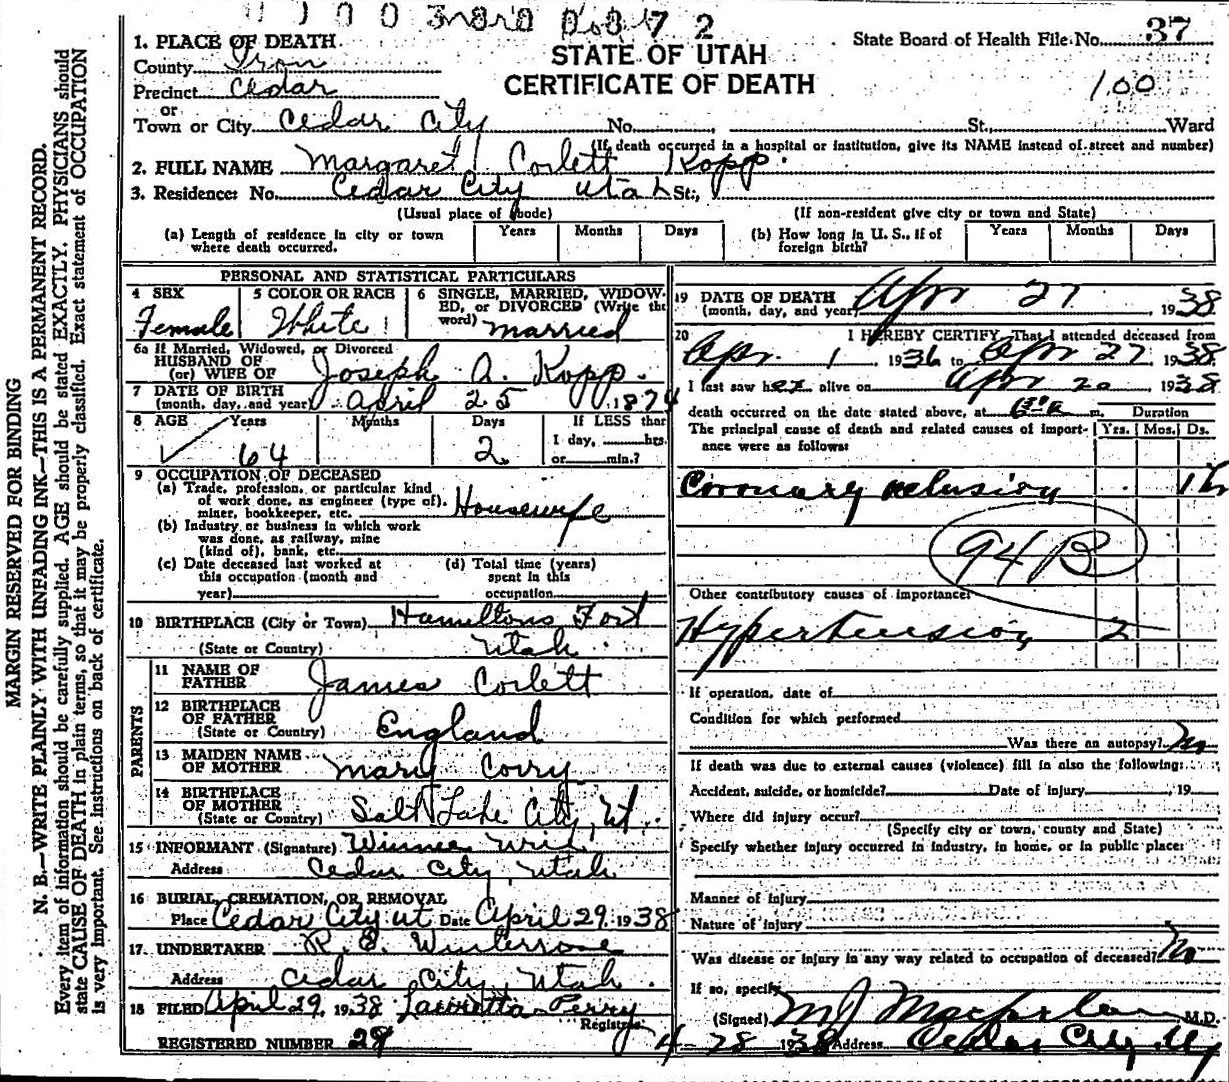 State Board of Health File No. 37
STATE OF UTAH
CERTIFICATE OF DEATH
100
1. PLACE OF DEATH
County Iron
Precinct Cedar
or
Town or City Cedar City No. St., Ward
(If death occurred in a hospital or institution, give its NAME instead of street and number)
2. FULL NAME Margaret Corlett Kopp.
3. Residence: No. Cedar City Utah St.,
(Usual place of abode) (If non-resident give city or town and State)
(a) Length of residence in city or town where death occurred. Years Months Days
(b) How long in U. S., if of foreign birth? Years Months Days
PERSONAL AND STATISTICAL PARTICULARS
4 SEX Female
5 COLOR OR RACE White
6 SINGLE, MARRIED, WIDOWED, or DIVORCED (Write the word) married
6a If Married, Widowed, or Divorced
HUSBAND OF
(or) WIFE OF Joseph A. Kopp.
7 DATE OF BIRTH
(month, day, and year) April 25, 1874
8 AGE Years 64 Months Days 2 If LESS than
1 day, hrs.
or min.?
9 OCCUPATION OF DECEASED
(a) Trade, profession, or particular kind
of work done, as engineer (type of),
miner, bookkeeper, etc. Housewife
(b) Industry or business in which work
was done, as railway, mine
(kind of), bank, etc.
(c) Date deceased last worked at
this occupation (month and
year)
(d) Total time (years)
spent in this
occupation
10 BIRTHPLACE (City or Town) Hamiltons Fort
(State or Country) Utah
PARENTS
11 NAME OF FATHER James Corlett
12 BIRTHPLACE OF FATHER
(State or Country) England
13 MAIDEN NAME OF MOTHER Mary Corry
14 BIRTHPLACE OF MOTHER
(State or Country) Salt Lake City, Ut.
15 INFORMANT (Signature) Winnie
Address Cedar City, Utah
16 BURIAL, CREMATION, OR REMOVAL
Place Cedar City Ut Date April 29, 1938
17. UNDERTAKER R. E.
Address Cedar City, Utah.
18 FILED April 29, 1938 Lauretta Perry
Registrar
REGISTERED NUMBER 29
19 DATE OF DEATH
(month, day, and year) Apr 27, 1938
20 I HEREBY CERTIFY, That I attended deceased from
Apr. 1, 1936 to Apr 27, 1938
I last saw her alive on Apr 20 1938
death occurred on the date stated above, at m. Duration
The principal cause of death and related causes of importance were as follows: Yrs. Mos. Ds.
Coronary oclusion 1 h
94 B
Other contributory causes of importance:
Hypertension, 2
If operation, date of
Condition for which performed
Was there an autopsy? No
If death was due to external causes (violence) fill in also the following:
Accident, suicide, or homicide? Date of injury , 19
Where did injury occur?
(Specify city or town, county and State)
Specify whether injury occurred in industry, in home, or in public place:
Manner of injury
Nature of injury
Was disease or injury in any way related to occupation of deceased? No
If so, specify
(Signed) M J Macfarlane M.D.
4-28 1938 Address Cedar City, Ut
MARGIN RESERVED FOR BINDING
N. B.—WRITE PLAINLY WITH UNFADING INK—THIS IS A PERMANENT RECORD.
Every item of information should be carefully supplied. AGE should be stated EXACTLY. PHYSICIANS should
state CAUSE OF DEATH in plain terms, so that it may be properly classified. Exact statement of OCCUPATION
is very important. See instructions on back of certificate.